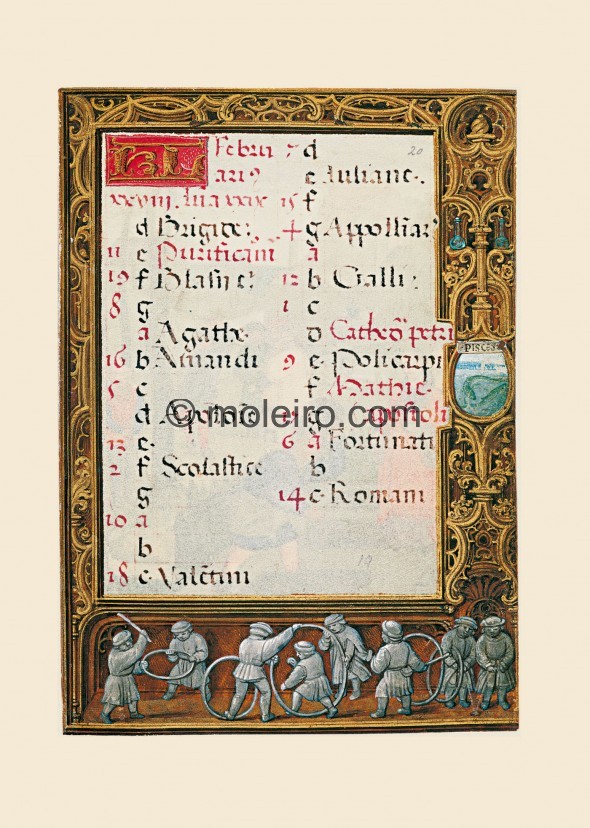 KL Februarius
xxviii. lua xxix
d Brigide.
11 e Purificatii
19 f Blasii et
8 g
a Agathe.
16 b Amandi
5 c
d Apolonie
13 e
2 f Scolastice
g
10 a
b
18 c Valetini
7 d
e Iuliane.
15 f
4 g Appolliar
a
12 b Galli.
1 c
d Cathedra petri
9 e Policarpi
f Mathie
g apostoli
6 a Fortunati
b
14 c Romani
20
19
PISCES
© moleiro.com